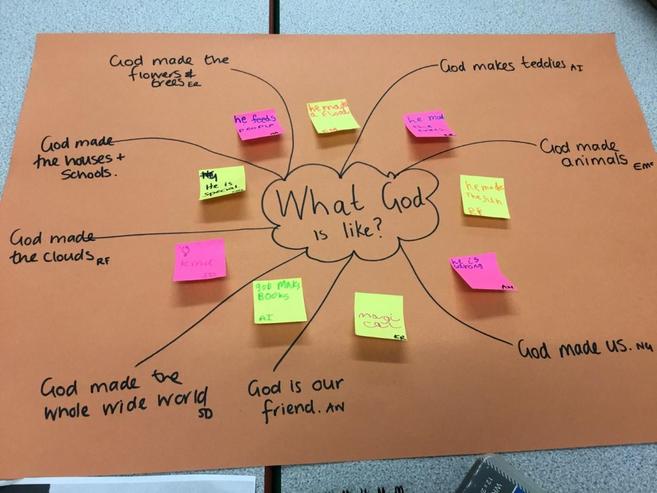 What God
is like?
God made the
flowers &
trees ER
God makes teddies AI
God made
animals Eme
God made us. NG
God is our
friend. AN
God made the
whole wide world
SD
God made
the clouds RF
God made
the houses +
schools.
he feeds
people
he made
a flood
he made
the sun
RF
he is
strong
AN
magi
cal
ER
god maks
Books
AI
NG
He is
special